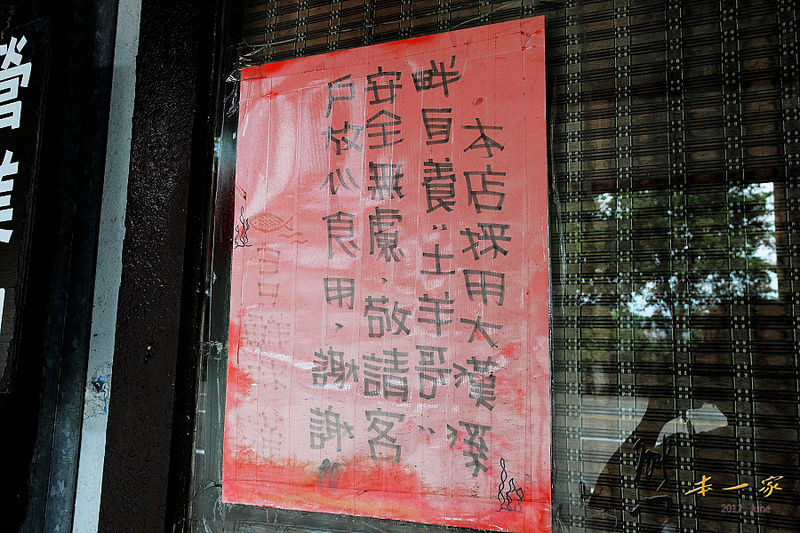 本店採用大漢溪
畔自養"土羊哥"
安全無慮.敬請客
戶放心食用,謝謝
營業
本一家
2012. June